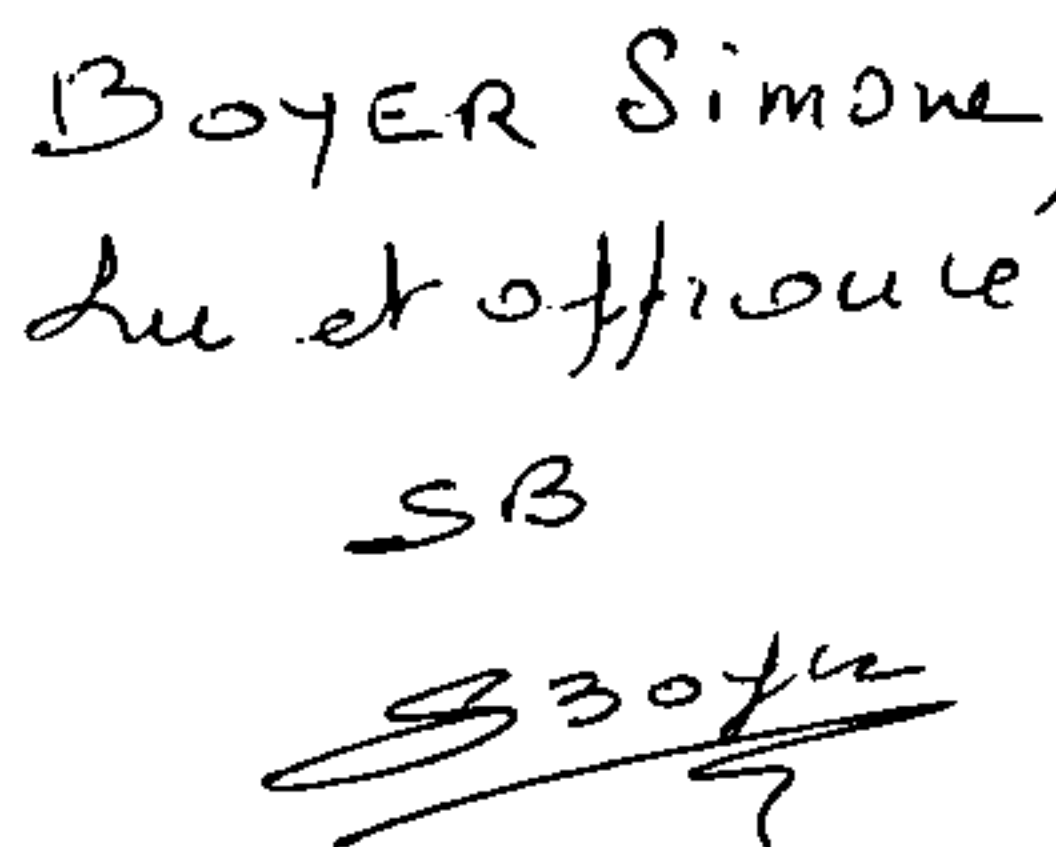 BOYER Simone
Lu et approuvé
SB
SBoyer